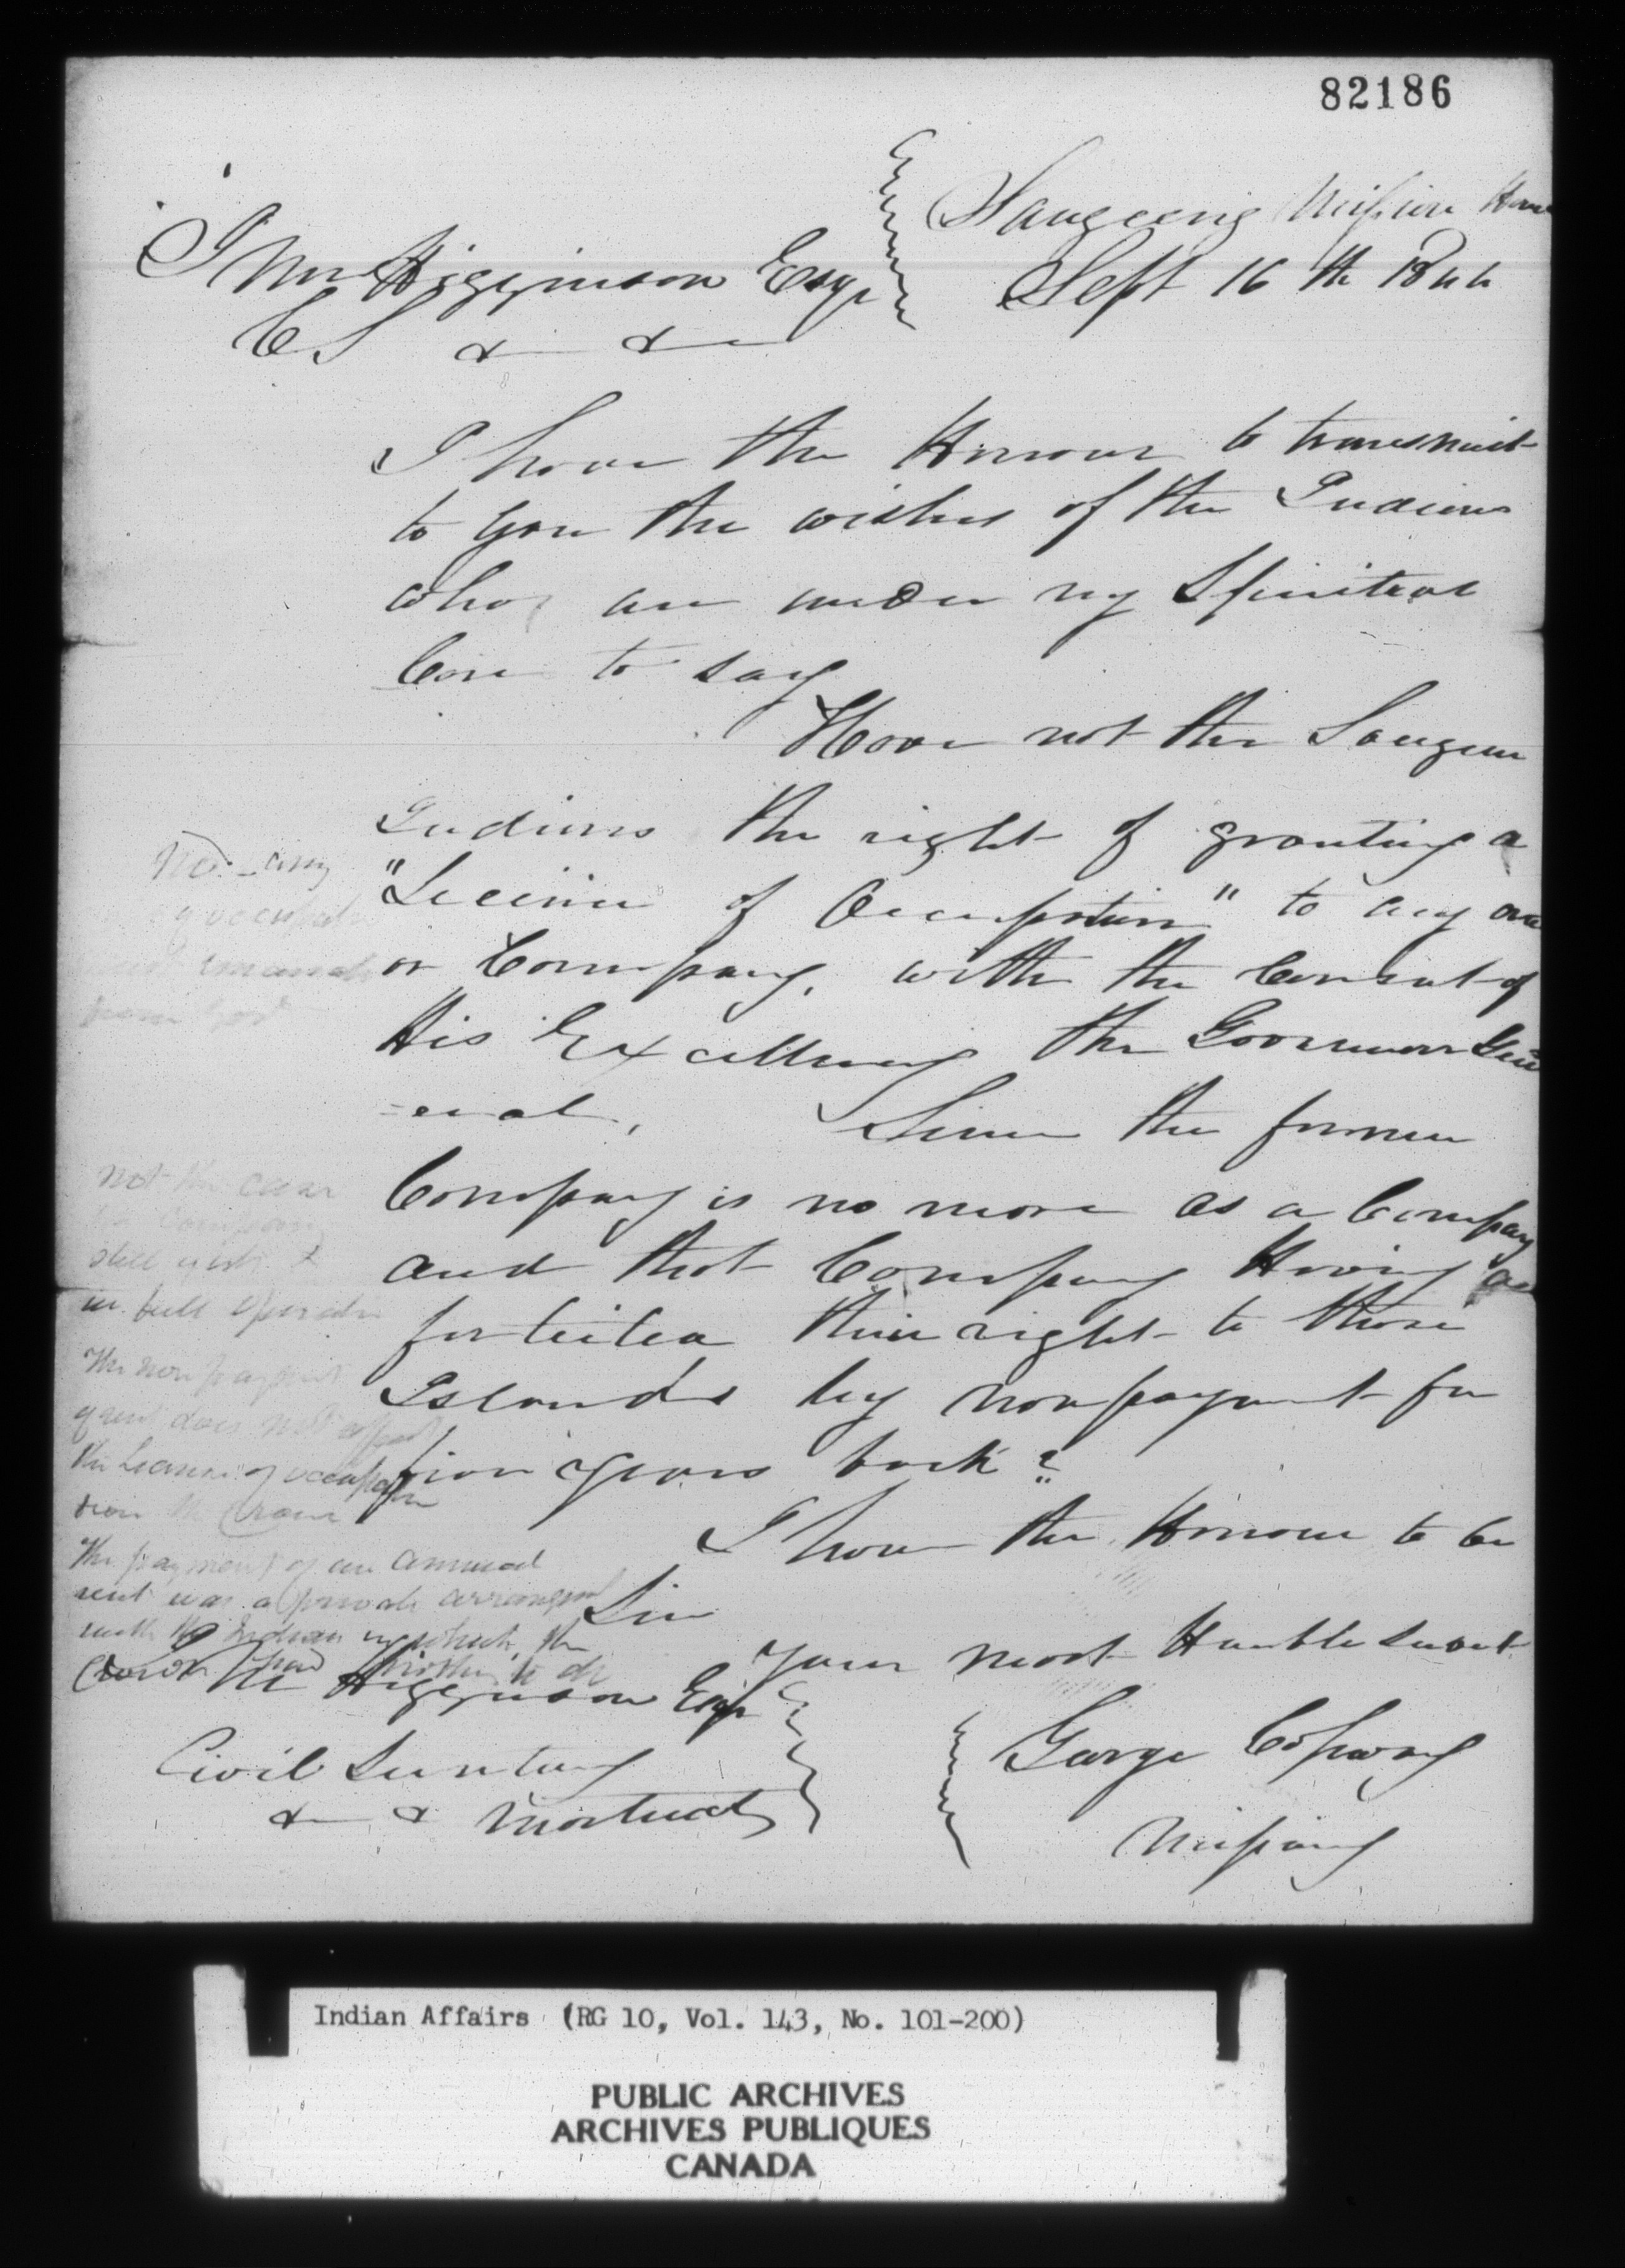 82186
Saugeeng Mission House
Sept 16th 1844
J M Higginson Esqr
C S & &
I have the Honour to transmit
to you the wishes of the Indians
who are under my Spiritual
Care to say
Have not the Saugeen
Indians the right of granting a
"Licence of Occupation" to any one
or Company, with the Consent of
His Excellency the Governor Gen
=eral, Since the former
Company is no more as a Company
and that Company Having
forfeited their right to those
Islands by non payment for
five years back?
I have the Honour to be
Sir
your most Humble Servt
George Copway
Missiony
Higginson Esqr
Civil Secretary
& & Montreal
No. any
of occupati
must emanate
from Govt
Not the case
the Company
still exists &
in full operation
The non payment
of rent does not affect
the License of occupation
from the Crown
The payment of an annual
rent was a private arrangement
with the Indians in which the
Crown had nothing to do
Indian Affairs (RG 10, Vol. 143, No. 101-200)
PUBLIC ARCHIVES
ARCHIVES PUBLIQUES
CANADA